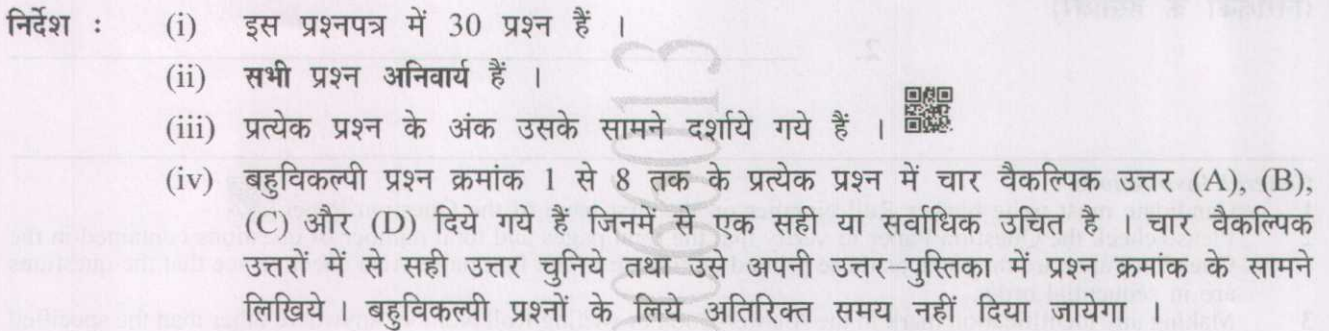 निर्देश : (i) इस प्रश्नपत्र में 30 प्रश्न हैं ।
(ii) सभी प्रश्न अनिवार्य हैं ।
(iii) प्रत्येक प्रश्न के अंक उसके सामने दर्शाये गये हैं ।
(iv) बहुविकल्पी प्रश्न क्रमांक 1 से 8 तक के प्रत्येक प्रश्न में चार वैकल्पिक उत्तर (A), (B),
(C) और (D) दिये गये हैं जिनमें से एक सही या सर्वाधिक उचित है । चार वैकल्पिक
उत्तरों में से सही उत्तर चुनिये तथा उसे अपनी उत्तर-पुस्तिका में प्रश्न क्रमांक के सामने
लिखिये । बहुविकल्पी प्रश्नों के लिए अतिरिक्त समय नहीं दिया जायेगा ।